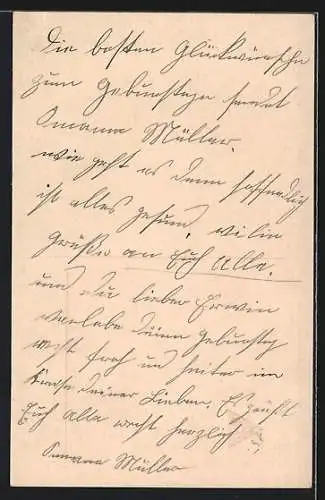 Die besten Glückwünsche
zum Geburstage sendet
Omama Müller.
wie geht es denn hoffendlich
ist alles gesund. viele
Grüße an Euch Alle.
und du lieber Erwin
verlebe deinen Geburstag
recht froh und heiter im
Kreise deiner Lieben. Es grüßt
Euch Alle recht herzlich
Omama Müller